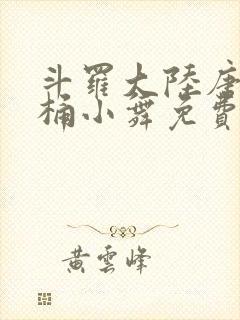 斗羅大陸唐
桶小舞免費
黃雲峰